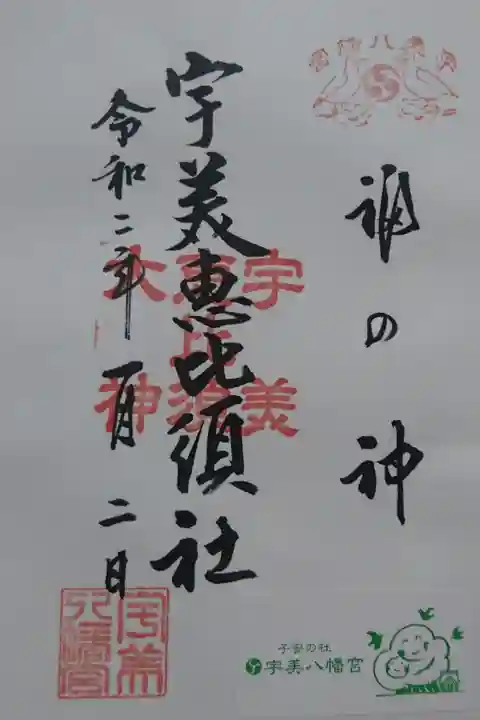 福の神
宇美恵比須社
令和二年一月二日
宇美
恵比須
大神
宇美
八幡宮
子安の社
宇美八幡宮